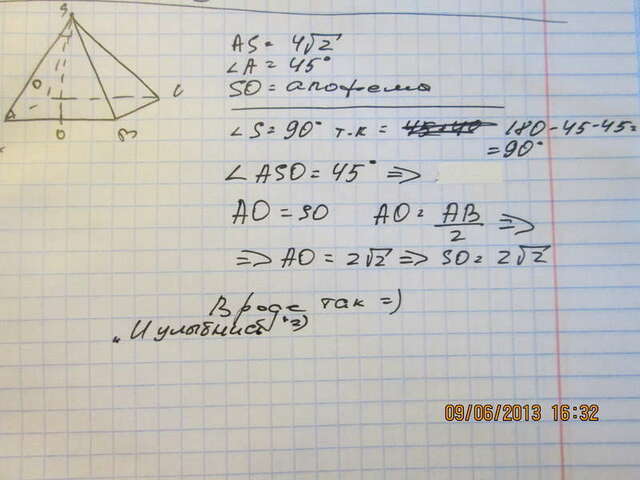 S
O
A
O
B
C
AS = 4√2
∠A = 45°
SO = апофема
∠S = 90° т.к = 180 - 45 - 45 =
= 90°
∠ASO = 45° =>
AO = SO AO = AB/2 =>
=> AO = 2√2 => SO = 2√2
Вроде так =)
09/06/2013 16:32